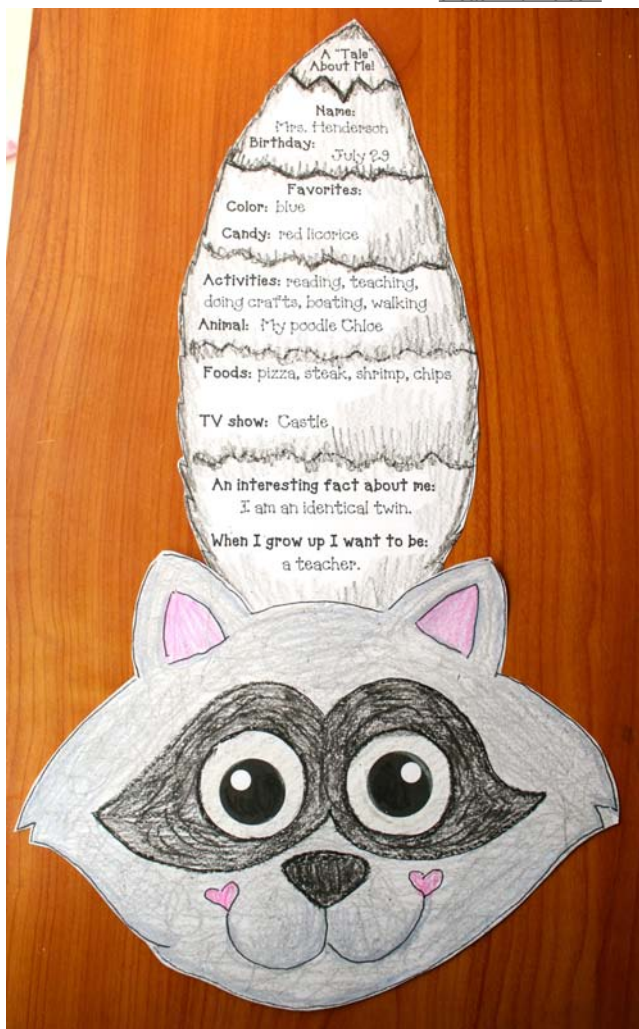 A "Tale"
About Me!
Name:
Mrs. Henderson
Birthday:
July 29
Favorites:
Color: blue
Candy: red licorice
Activities: reading, teaching,
doing crafts, boating, walking
Animal: My poodle Chloe
Foods: pizza, steak, shrimp, chips
TV show: Castle
An interesting fact about me:
I am an identical twin.
When I grow up I want to be:
a teacher.